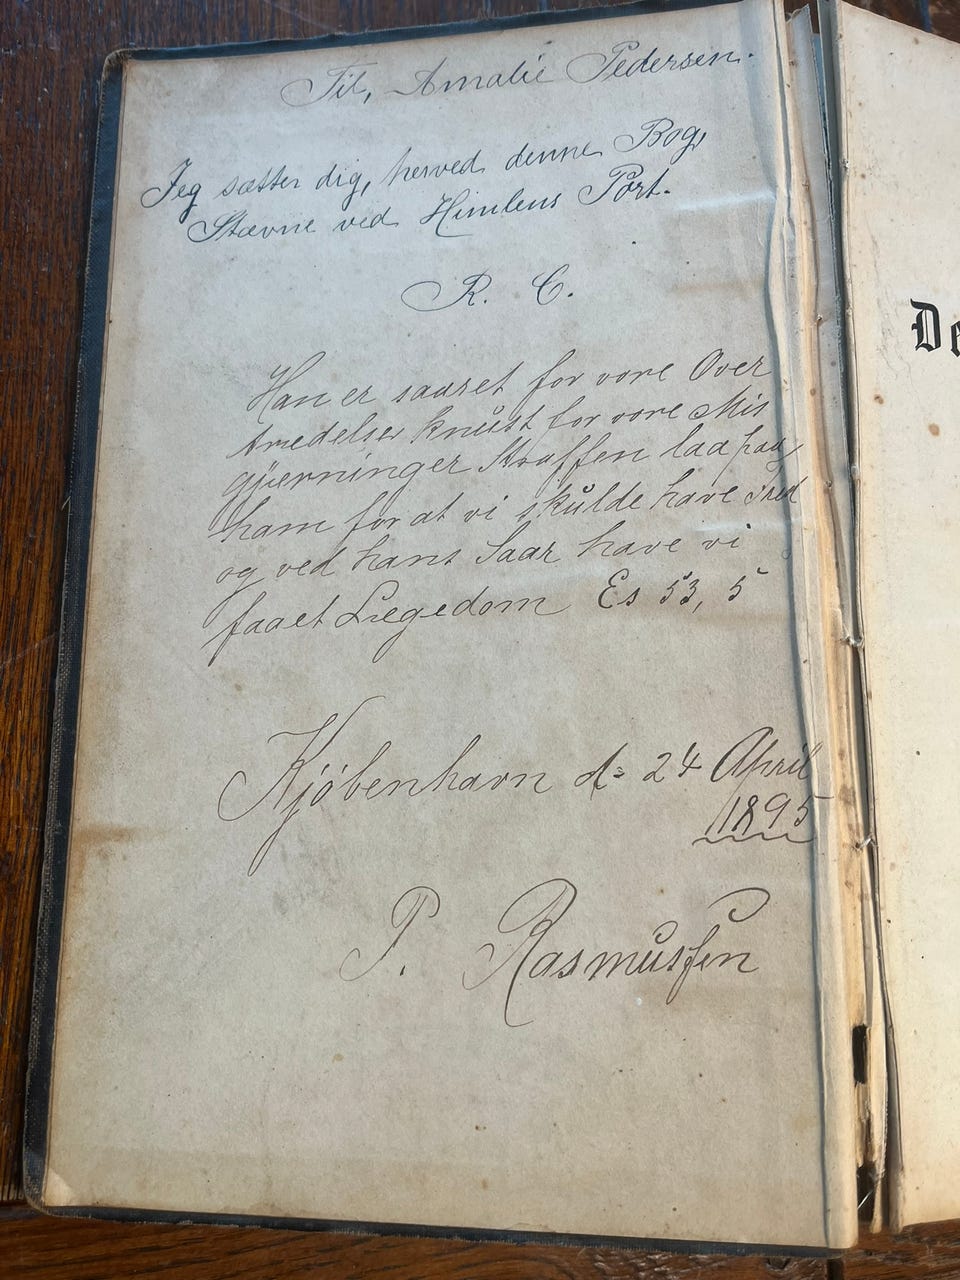 Til, Amalie Pedersen.
Jeg sætter dig, herved denne Bog,
Stævne ved Himlens Port.
R. C.
Han er saaret for vore Over
trædelser knust for vore Mis
gjerninger Straffen laa paa
ham for at vi skulde have Fred
og ved hans Saar have vi
faaet Lægedom Es 53, 5
Kjøbenhavn d= 24 April
1895
P. Rasmussen
De